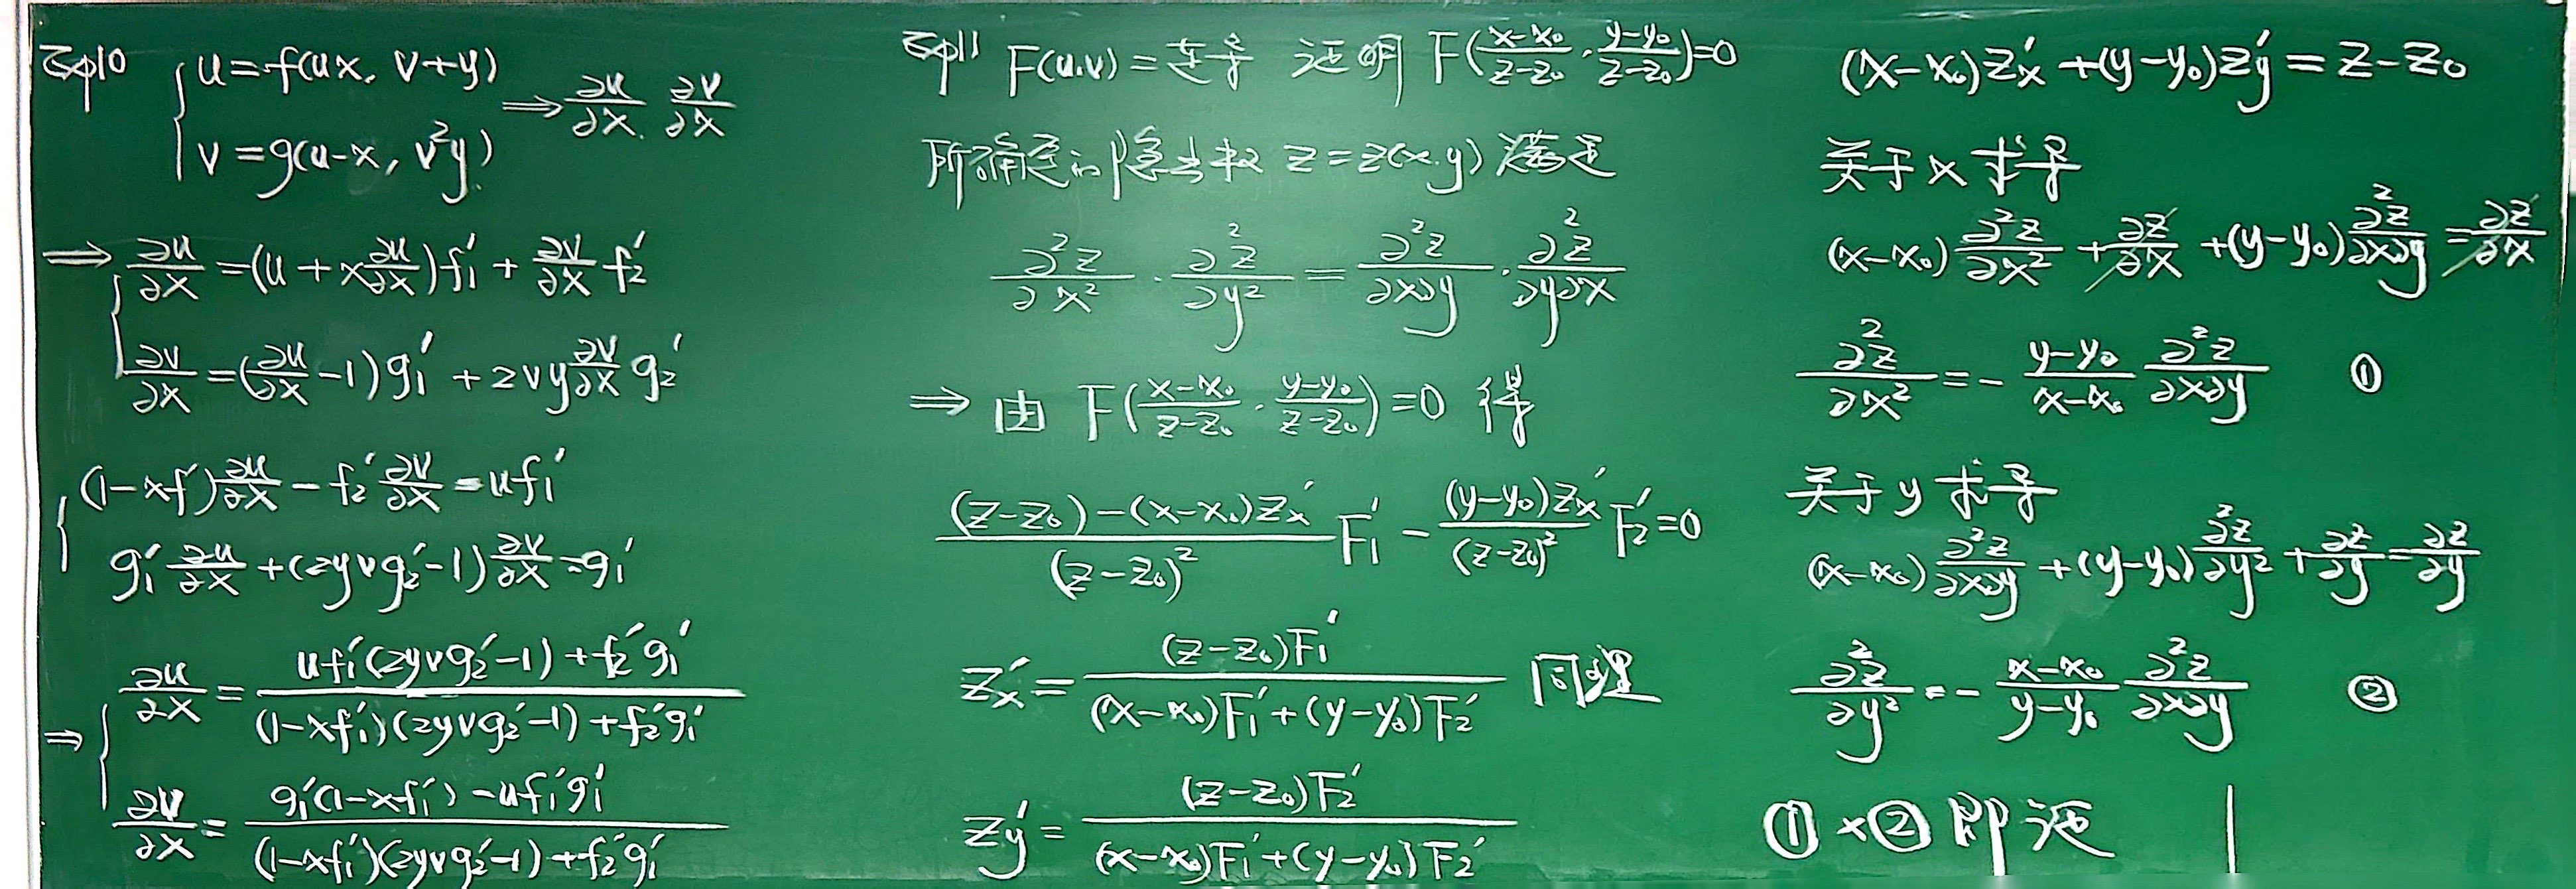 Eg10 { u=f(ux, v+y)
v=g(u-x, v²y) ⇒ ∂u/∂x, ∂v/∂x
⇒ { ∂u/∂x=(u+x∂u/∂x)f₁′+∂v/∂x f₂′
∂v/∂x=(∂u/∂x-1)g₁′+2vy∂v/∂x g₂′
{ (1-xf′)∂u/∂x-f₂′∂v/∂x=uf₁′
g₁′∂u/∂x+(2yvg₂′-1)∂v/∂x=g₁′
⇒ { ∂u/∂x=(uf₁′(2yvg₂′-1)+f₂′g₁′)/((1-xf₁′)(2yvg₂′-1)+f₂′g₁′)
∂v/∂x=(g₁′(1-xf₁′)-uf₁′g₁′)/((1-xf₁′)(2yvg₂′-1)+f₂′g₁′)
Eg11 F(u.v)=连导 证明 F((x-x₀)/(z-z₀)·(y-y₀)/(z-z₀))=0
所确定的隐函数 z=z(x.y) 满足
∂²z/∂x²·∂²z/∂y²=∂²z/∂x∂y·∂²z/∂y∂x
⇒ 由 F((x-x₀)/(z-z₀)·(y-y₀)/(z-z₀))=0 得
((z-z₀)-(x-x₀)zx′)/(z-z₀)² F₁′-((y-y₀)zx′)/(z-z₀)² F₂′=0
zx′=((z-z₀)F₁′)/((x-x₀)F₁′+(y-y₀)F₂′) 同理
zy′=((z-z₀)F₂′)/((x-x₀)F₁′+(y-y₀)F₂′)
(x-x₀)zx′+(y-y₀)zy′=z-z₀
关于x求导
(x-x₀)∂²z/∂x²+∂z/∂x+(y-y₀)∂²z/∂x∂y=∂z/∂x
∂²z/∂x²=-(y-y₀)/(x-x₀) ∂²z/∂x∂y ①
关于y求导
(x-x₀)∂²z/∂x∂y+(y-y₀)∂²z/∂y²+∂z/∂y=∂z/∂y
∂²z/∂y²=-(x-x₀)/(y-y₀) ∂²z/∂x∂y ②
①×② 即证